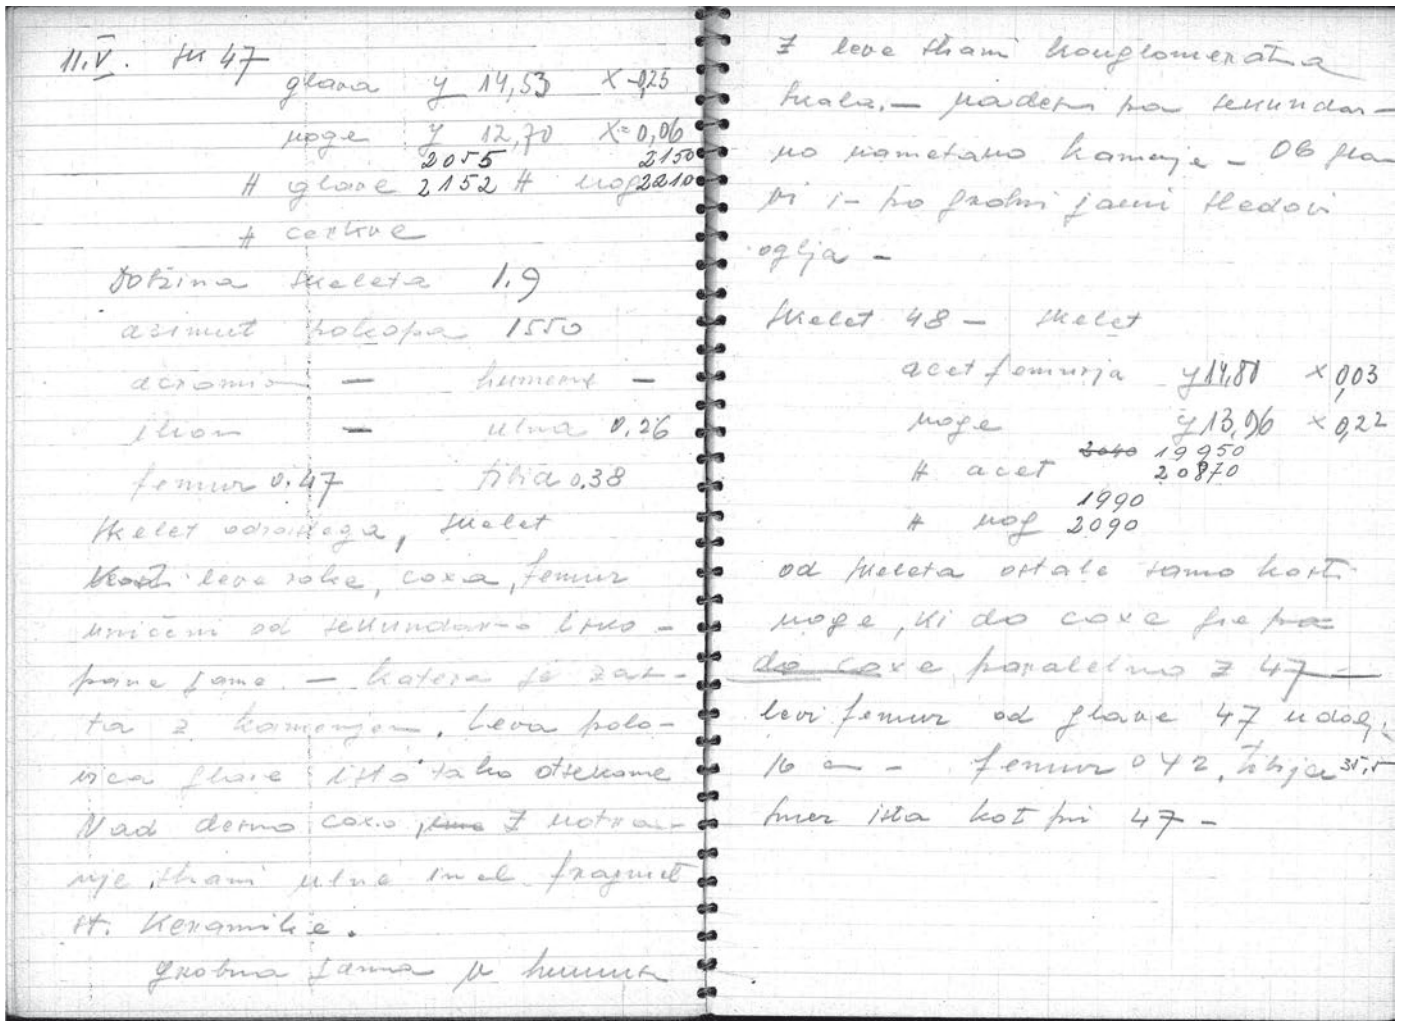 11. V. sk 47
glava y 14,53 X -0,25
noge y 12,70 X = 0,06
2055 2150
H glave 2152 H nog 2210
H centra
Dolžina skeleta 1.9
azimut pokopa 1550
acromion — humerus —
ilion — ulna 0.26
femur 0.47 tibia 0.38
Skelet odraslega, skelet
kosti leve roke, coxa, femur
uničeni od sekundarno izko-
pane jame — katera je zasu-
ta z kamenjem. Leva polo-
vica glave isto tako odsekane
Nad desno coxo, Z notra-
nje strani ulne imel fragment
st. Keramike.
grobna jama v humus
Z leve strani konglomeratna
skala. — na desni pa sekundar-
no nametano kamenje — Ob gla-
vi i- po grobni jami sledovi
oglja —
Skelet 48 — skelet
acet femurja y 14,81 X 0,03
noge y 13,06 X 0,22
2040 19950
H acet 20870
1990
H nog 2090
od skeleta ostale samo kosti
noge, ki do coxe gre pa
do coxe paralelno z 47 —
levi femur od glave 47 udalj.
16 cm — femur 042, tibija 35,5
smer ista kot pri 47 —